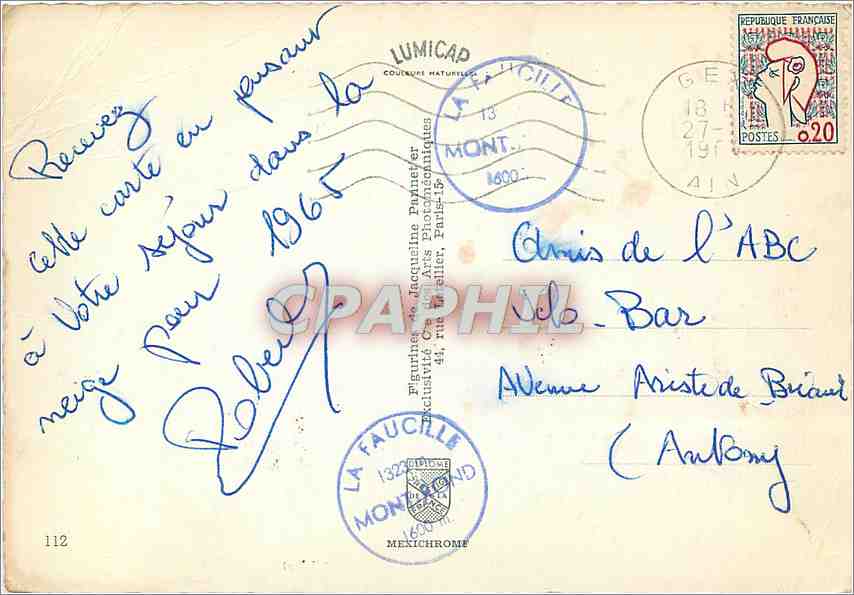 LUMICAP
COULEURS NATURELLES
Recevez
cette carte en pensant
à Votre séjour dans la
neige pour 1965
Robert
LA FAUCILLE
13
MONT.
1600
GEX
18 H
27-
196
AIN
REPUBLIQUE FRANÇAISE
POSTES 0,20
Amis de l'ABC
Velo-Bar
Avenue Aristide Briand
(Antony
Figurines de Jacqueline Pannetier
Exclusivité Cie des Arts Photomécaniques
44, rue Letellier, Paris-15
CPAPHIL
LA FAUCILLE
1323 m
MONT ROND
1600 m.
DIPLOME
DE LA
FRANCE
MEXICHROME
112